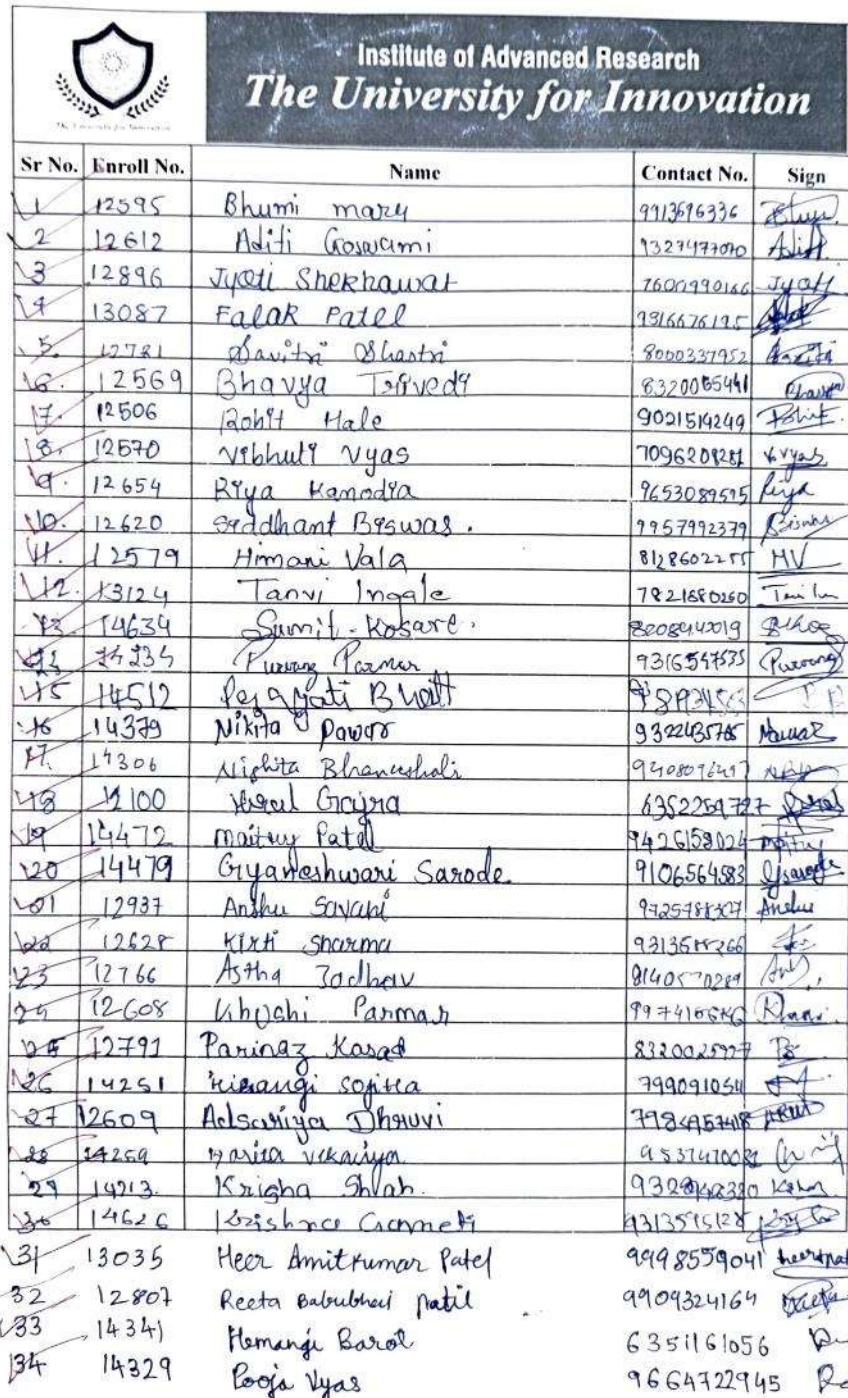 The University for Innovation
Institute of Advanced Research
The University for Innovation
Sr No. Enroll No. Name Contact No. Sign
1 12595 Bhumi mary 9913696336
2 12612 Aditi Goswami 9327477070 Aditi
3 12896 Jyoti Shekhawat 7600990166 Jyoti
4 13087 Falak Patel 9316676195
5. 12781 Savitri Shastri 8000337952 Savitri
6. 12569 Bhavya Trivedi 8320065441 Bhavya
7. 12506 Rohit Hale 9021514249 Rohit
8. 12570 Vibhuti Vyas 7096208281 V.vyas
9. 12654 Riya Kanodia 9653089595 Riya
10. 12620 Siddhant Biswas. 9957992379 Biswas
11. 12579 Himani Vala 8128602255 HV
12. 13124 Tanvi Ingale 7821880260
13. 14634 Sumit Kosare.
Purvang Parmar 9316547535 Purvang
15 14512 Bhatt
16 14379 Nikita Pawar 9322435765
17. 14306 Nishita Bhanushali
18 12100 Hiral Gajra 6352259727
19 14472 maitry Patel 9426158024 maitry
20 14479 Gyaneshwari Sarode 9106564583 Gsarode
21 12937 Anshu Savani Anshu
22 12628 Kirti Sharma
23 12766 Astha Jadhav
24 12608 Khushi Parmar
25 12791 Parinaz Kasad 8320025927
26 14251 799091054
27 12609 Adsariya Dhruvi
28 14259 9537410081
29 14213. Krisha Shah.
30 14626
31 13035 Heer Amitkumar Patel 9998559041
32 12807 Reeta Babubhai patil 9909324164
33 14341 Hemangi Barot 6351161056
34 14329 Pooja Vyas 9664722945